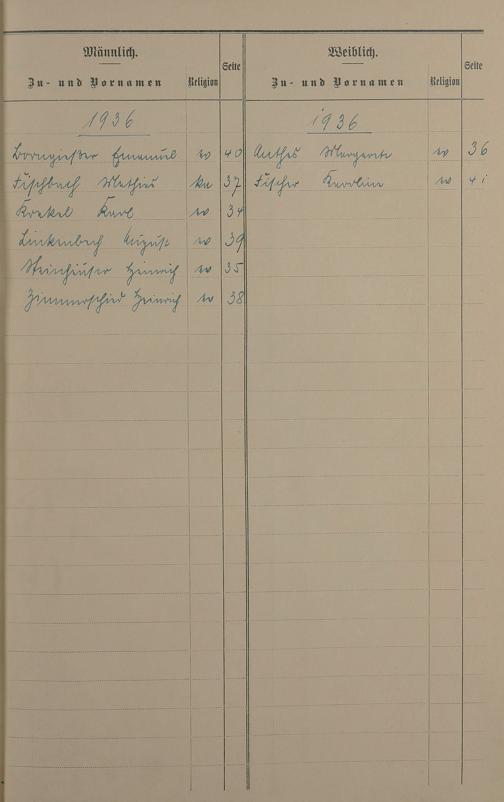 Männlich. Weiblich.
Zu- und Vornamen Religion Seite Zu- und Vornamen Religion Seite
1936 1936
Borngießer Emanuel ev 40 Anthes Margarete ev 36
Fischbach Mathius ka 37 Fischer Karoline ev 41
Krekel Karl ev 34
Linkenbach August ev 39
Steinhäuser Heinrich ev 35
Zimmerschied Heinrich ev 38